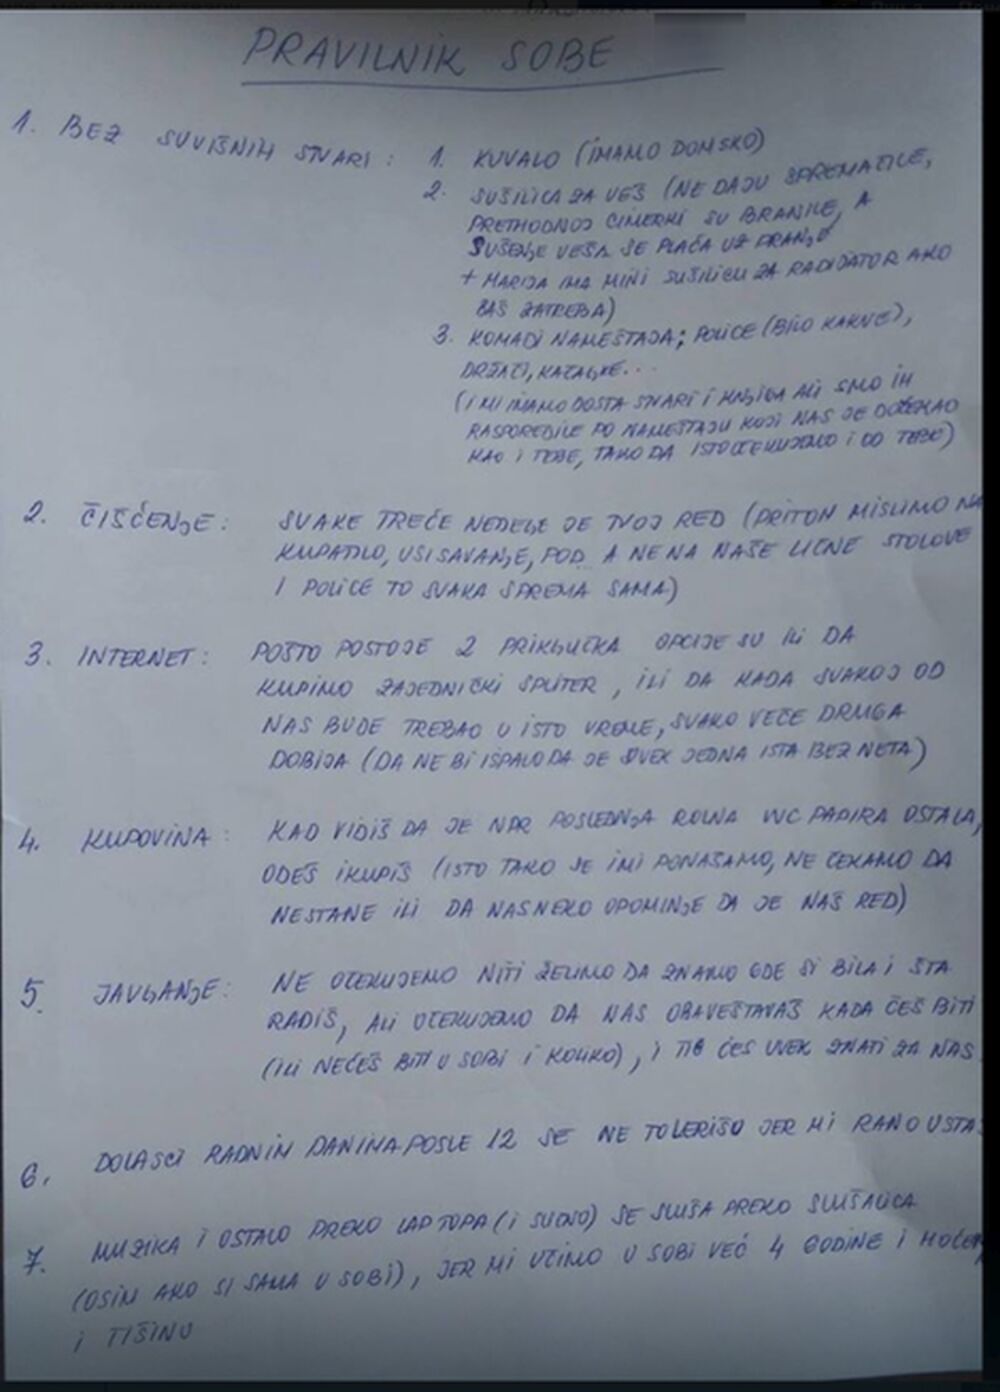 PRAVILNIK SOBE
1. BEZ SUVIŠNIH STVARI: 1. KUVALO (IMAMO DOMSKO)
2. SUŠILICA ZA VEŠ (NE DAJU SPREMAČICE,
PRETHODNOJ CIMERKI SU BRANILE, A
SUŠENJE VEŠA SE PLAĆA UZ PRANJE
+ MARIJA IMA MINI SUŠILICU ZA RADIJATOR AKO
BAŠ ZATREBA)
3. KOMADI NAMEŠTAJA; POLICE (BILO KAKVE),
DRŽAČI, KAČALJKE...
(I MI IMAMO DOSTA STVARI I KNJIGA ALI SMO IH
RASPOREDILE PO NAMEŠTAJU KOJI NAS JE DOČEKAO
KAO I TEBE, TAKO DA ISTO OČEKUJEMO I OD TEBE)
2. ČIŠĆENJE: SVAKE TREĆE NEDELJE JE TVOJ RED (PRITOM MISLIMO NA
KUPATILO, USISAVANJE, POD A NE NA NAŠE LIČNE STOLOVE
I POLICE TO SVAKA SPREMA SAMA)
3. INTERNET: POŠTO POSTOJE 2 PRIKLJUČKA OPCIJE SU ILI DA
KUPIMO ZAJEDNIČKI SPLITER, ILI DA KADA SVAKOJ OD
NAS BUDE TREBAO U ISTO VREME, SVAKO VEČE DRUGA
DOBIJA (DA NE BI ISPALO DA JE UVEK JEDNA ISTA BEZ NETA)
4. KUPOVINA: KAD VIDIŠ DA JE NPR POSLEDNJA ROLNA WC PAPIRA OSTALA,
ODEŠ I KUPIŠ (ISTO TAKO SE I MI PONAŠAMO, NE ČEKAMO DA
NESTANE ILI DA NAS NEKO OPOMINJE DA JE NAŠ RED)
5. JAVLJANJE: NE OČEKUJEMO NITI ŽELIMO DA ZNAMO GDE SI BILA I ŠTA
RADIŠ, ALI OČEKUJEMO DA NAS OBAVEŠTAVAŠ KADA ĆEŠ BITI
(ILI NEĆEŠ BITI U SOBI I KOLIKO), I TI ĆEŠ UVEK ZNATI ZA NAS
6. DOLASCI RADNIM DANIMA POSLE 12 SE NE TOLERIŠU JER MI RANO USTA
7. MUZIKA I OSTALO PREKO LAPTOPA (I SLIČNO) SE SLUŠA PREKO SLUŠALICA
(OSIM AKO SI SAMA U SOBI), JER MI UČIMO U SOBI VEĆ 4 GODINE I HOĆEM
I TIŠINU